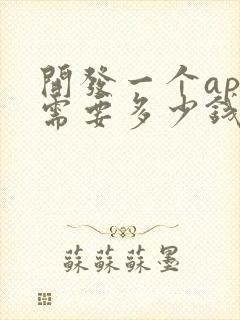 開發一个ap
需要多少錢
蘇蘇蘇墨